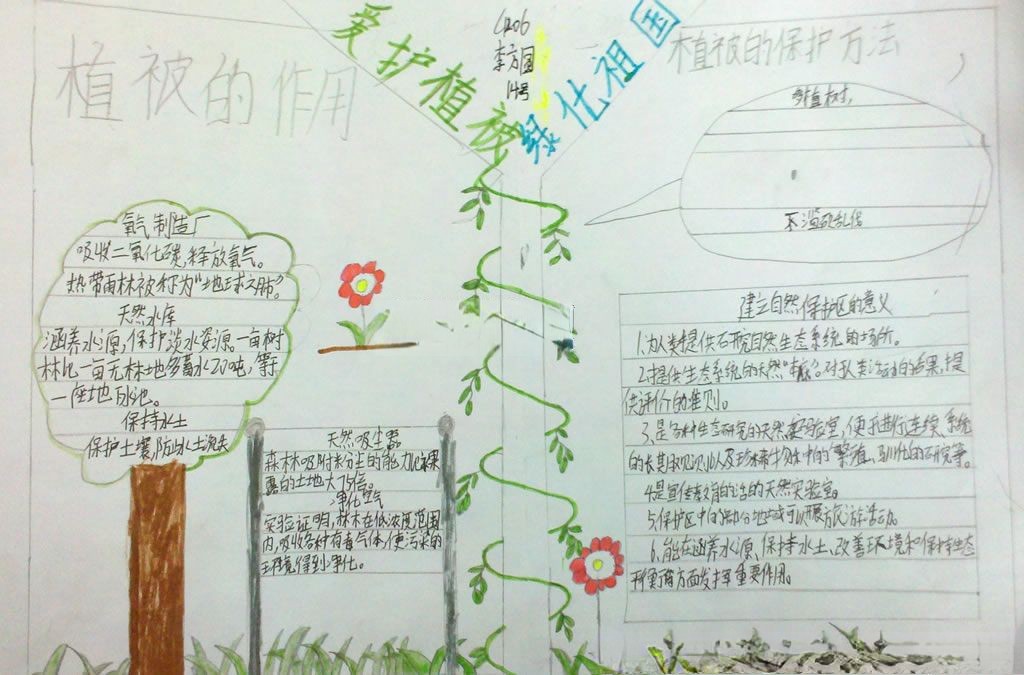 爱护植被
绿化祖国
李方圆
14号
植被的作用
氧气制造厂
吸收二氧化碳,释放氧气。
热带雨林被称为“地球之肺”。
天然水库
涵养水源,保护淡水资源。一亩树
林比一亩无林地多蓄水20吨,等于
一座地下水池。
保持水土
保护土壤,防止水土流失
天然吸尘器
森林吸附粉尘的能力比裸
露的土地大75倍。
净化空气
实验证明,林木在低浓度范围
内,吸收各种有毒气体,使污染的
环境得到净化。
植被的保护方法
多植树,
不滥砍乱伐
建立自然保护区的意义
1.为人类提供研究自然生态系统的场所。
2.提供生态系统的天然“本底”。对人类活动的后果,提
供评价的准则。
3.是各种生态研究的天然实验室,便于进行连续、系统
的长期观测以及珍稀物种的繁殖、驯化的研究等。
4.是宣传教育的活的天然实验室。
5.保护区中的部分地域可以开展旅游活动。
6.能在涵养水源、保持水土、改善环境和保持生态
平衡等方面发挥重要作用。